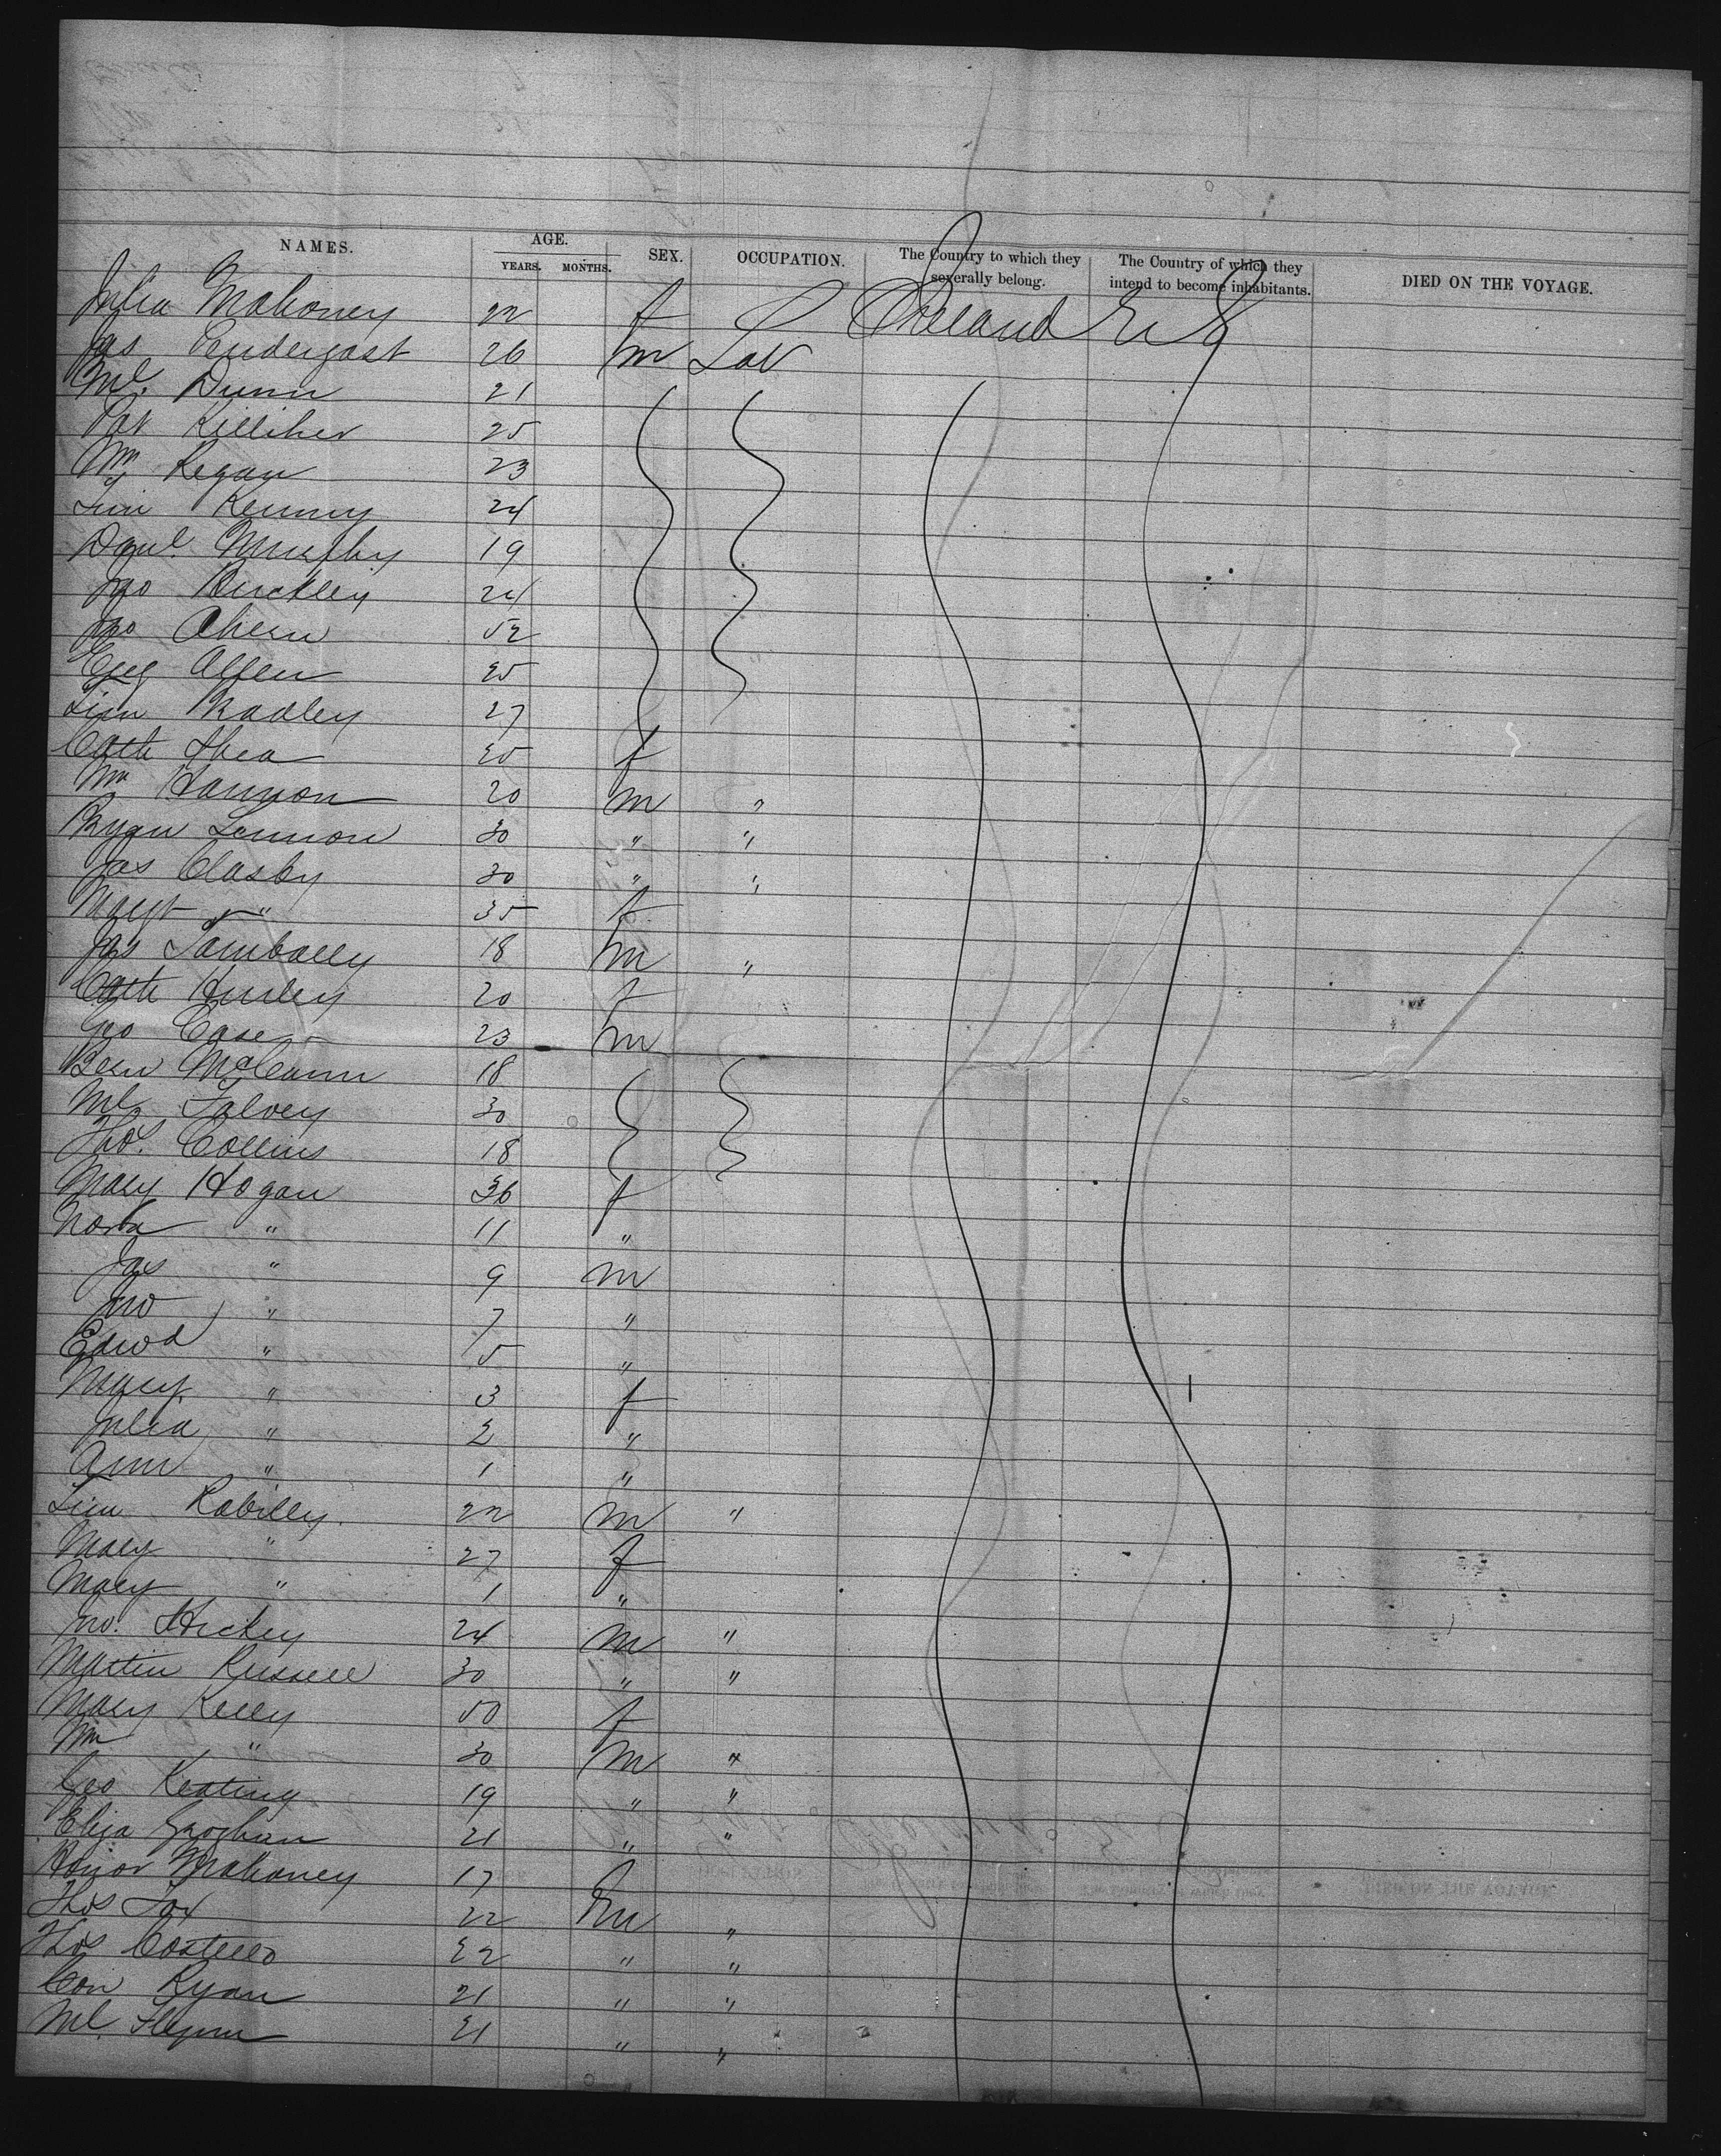 NAMES. AGE. SEX. OCCUPATION. The Country to which they severally belong. The Country of which they intend to become inhabitants. DIED ON THE VOYAGE.
YEARS. MONTHS.
Julia Mahoney 22 f Ireland
Jas Pendergast 26 m Lab
Ml. Dunn 21
Pat Killiher 25
Wm Regan 23
Tim Kenny 24
Danl. Murphy 19
Jno Buckley 24
Jno Ahern 52
Eug Allen 25
Tim Radley 27
Cath Shea 20 f
Wm Hannon 20 m "
Ryan Lennon 30 " "
Jas Clasby 30 " "
Margt " 35 f
Jas Tambally 18 m "
Cath Hurley 20 f
Geo Case 23 m
Bern McCann 18
Ml Falvey 30
Thos. Collins 18
Mary Hogan 36 f
Nora " 11 "
Jas " 9 m
Jno " 7 "
Edwd " 5 "
Mary " 3 f
Julia " 2 "
Ann " 1 "
Tim Rabilly. 22 m "
Mary " 27 f
Mary " 1 "
Jno. Hickey 24 m "
Martin Russell 30 " "
Mary Kelly 50 f
Wm " 30 m "
Geo Keating 19 " "
Eliza Groghan 21 " "
Honor Mahoney 17 f
Thos Fox 22 m "
Thos Costello 22 " "
Con Ryan 21 " "
Ml. Flynn 21 " "